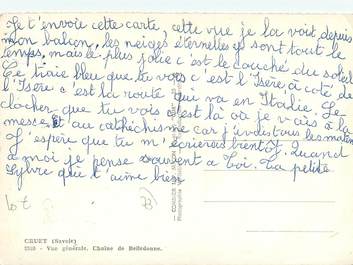 Je t'envoie cette carte, cette vue je la vois, depuis
mon balcon, les neiges éternelles y sont tout le
temps, mais le plus jolie c'est le couché du soleil
Ce traie bleu que tu vois c'est l'Isère, à coté de
l'Isère c'est la route qui va en Italie. Le
clocher que tu vois c'est là où je vais à la
messe et au cathéchisme car j'y vais tous les matins
J'espère que tu m'écrieras bientôt. Quand
à moi je pense souvent à toi. La petite
Sylvie qui t'aime bien
CRUET (Savoie)
Vue générale. Chaîne de Belledonne.